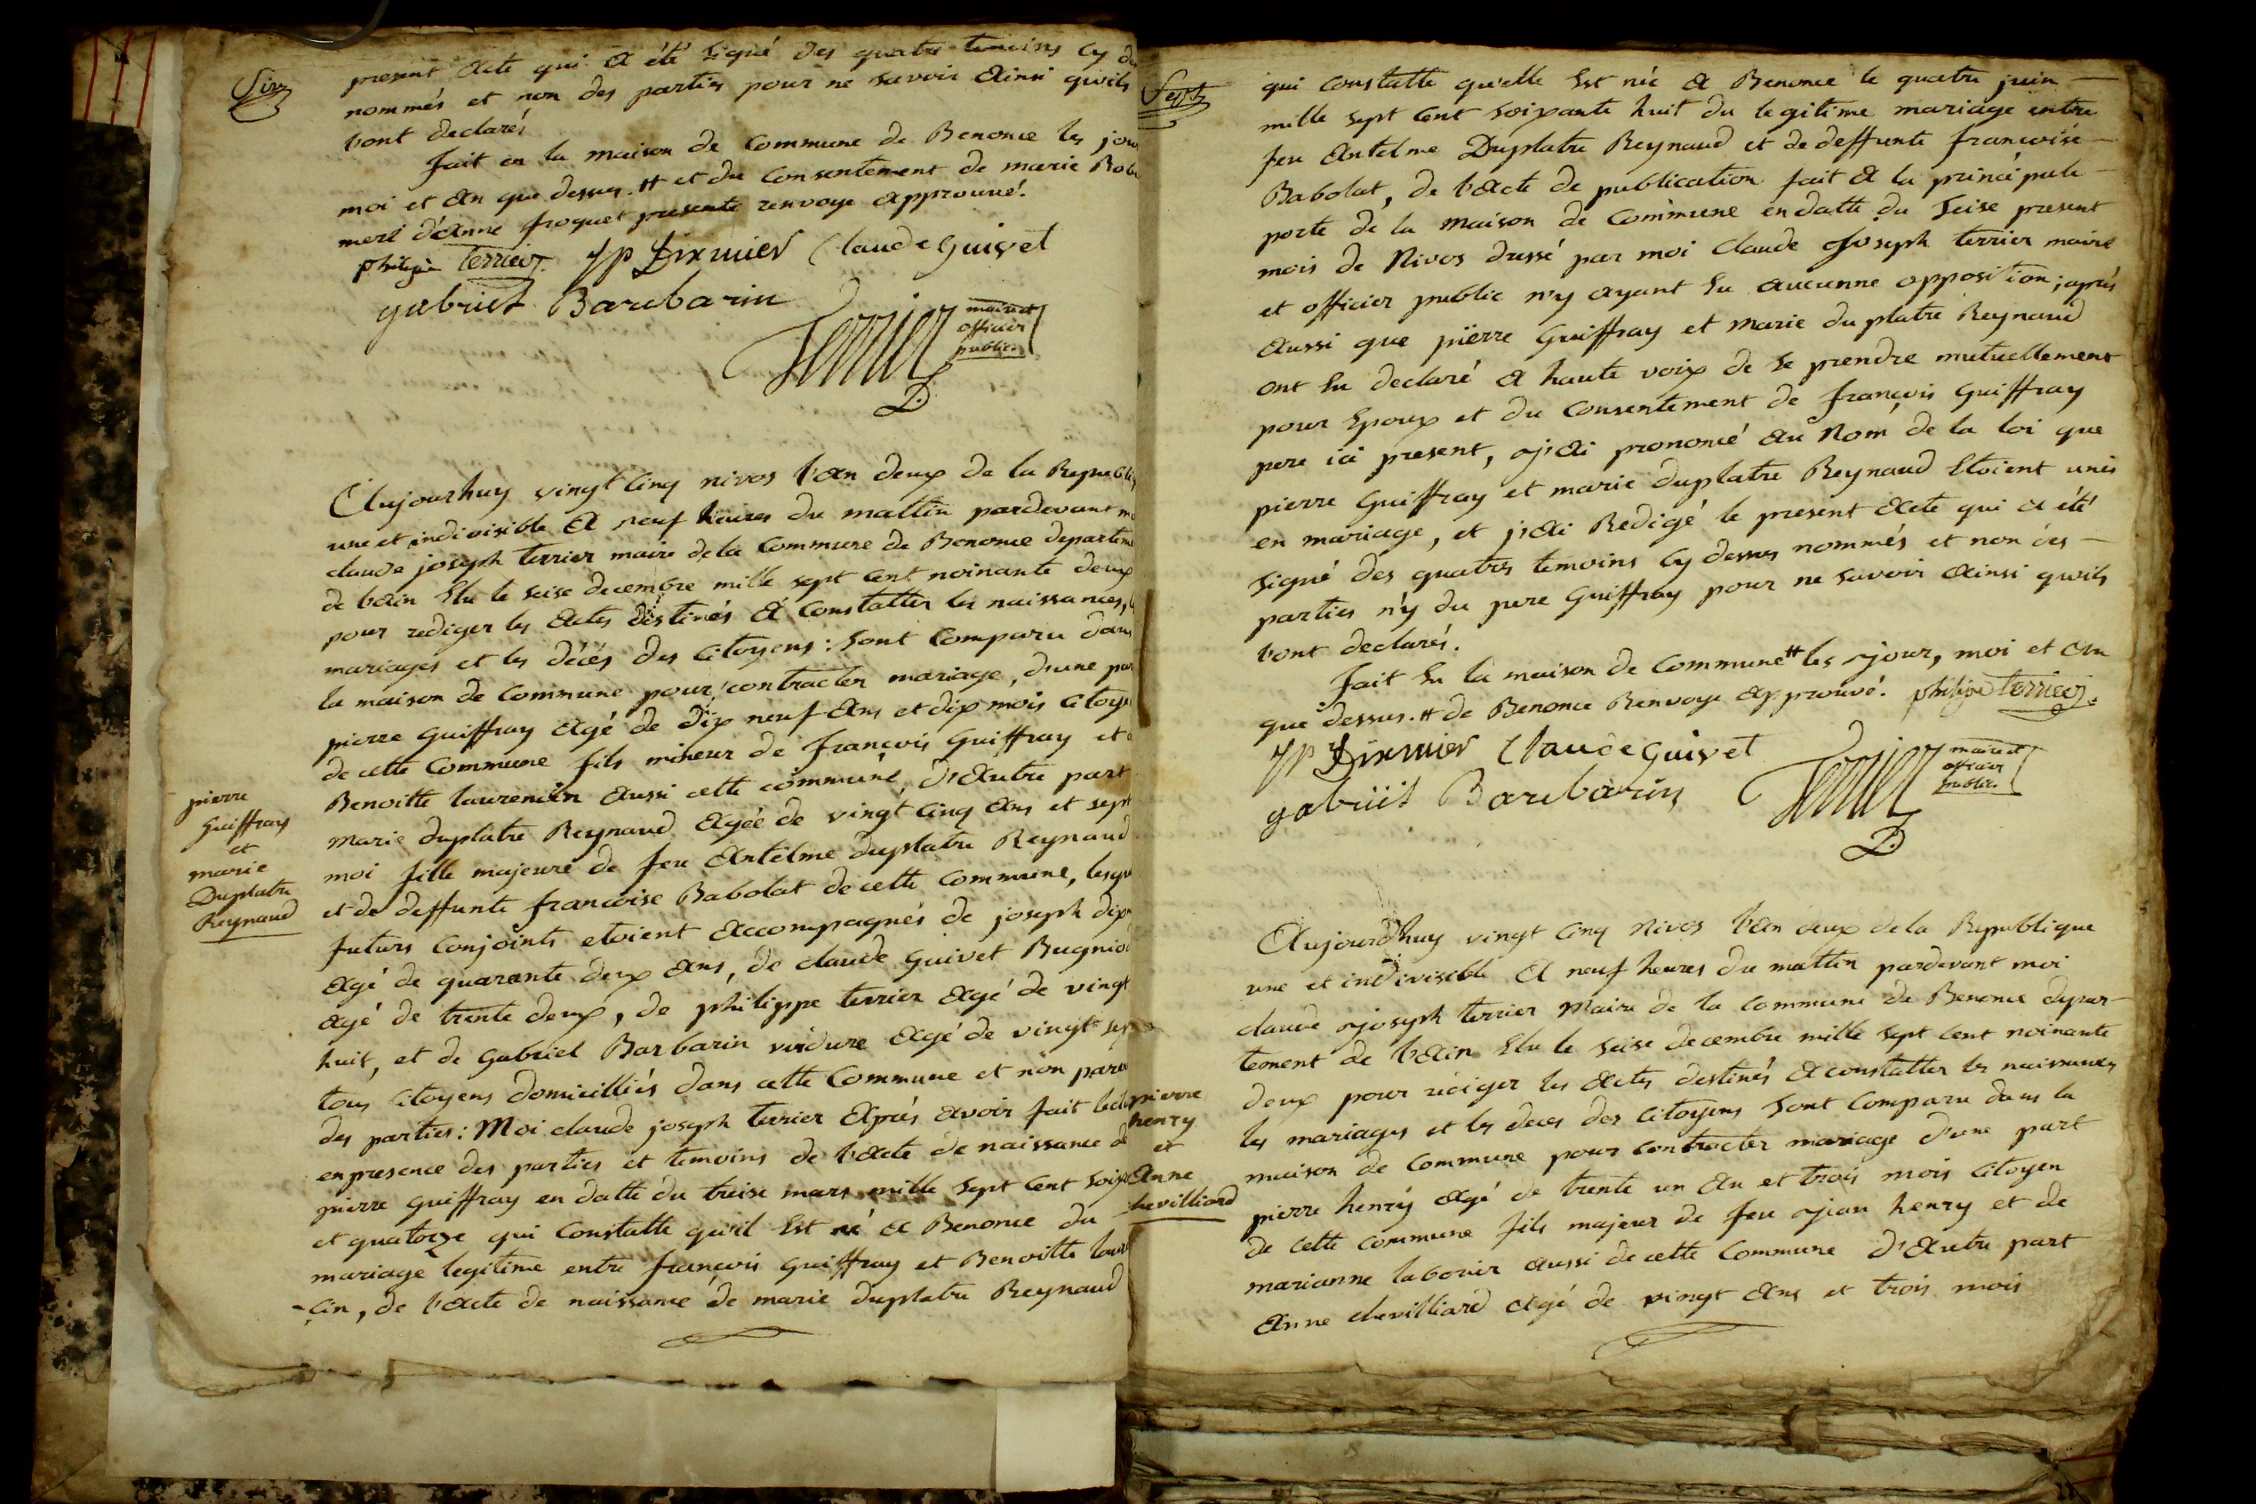 Six
present acte qui a été signé des quatre temoins cy de
nommés et non des parties pour ne savoir ainsi quils
l'ont declarés
fait en la maison de commune de Benonce les jour
moi et an que dessus. # et du consentement de marie Rob
mere d'anne froquet presente renvoye approuvé.
philippe terrier. JP Dixmier Claude Guivet
gabriel Barbarin
Terrier maire et
officier
public.
Aujourhuy vingt cinq nivos l'an deux de la Republi
une et indivisible a neuf heures du mattin pardevant m
claude joseph terrier maire de la commune de Benonce departeme
de l'ain elu le seise decembre mille sept cent noinante deux
pour rediger les actes destinés a constatter les naissances, l
mariages et les décés des citoyens : sont comparu dans
la maison de commune pour contracter mariage, d'une par
pierre Guiffray agé de dix neuf ans et dix mois citoye
de cette commune fils mineur de françois Guiffray et d
Benoitte laurencin aussi cette commune, d'autre part
pierre
Guiffray
et
marie
Duplatre
Reynaud
marie duplatre Reynaud agée de vingt cinq ans et sept
moi fille majeure de feu Antelme duplatre Reynaud
et de deffunte francoise Babolat de cette commune, lesqu
futurs conjoints etoient accompagnés de joseph dix
agé de quarante deux ans, de claude Guivet Bugniod
agé de trente deux, de philippe terrier agé de vingt
huit, et de Gabriel Barbarin virdure agé de vingt sep
tous citoyens domicilliés dans cette commune et non paren
des parties : Moi claude joseph terrier aprés avoir fait lect
en presence des parties et temoins de l'acte de naissance de
pierre Guiffray en datte du treise mars mille sept cent soix
et quatorze qui constatte qu'il est né a Benonce du
mariage legitime entre françois Guiffray et Benoitte laur
-cin, de l'acte de naissance de marie duplatre Reynaud
Sept
qui constatte qu'elle est née a Benonce le quatre juin
mille sept cent soixante huit du legitime mariage entre
feu Antelme Duplatre Reynaud et de deffunte francoise
Babolat, de l'acte de publication fait a la principale
porte de la maison de commune en datte du seise present
mois de Nivos dressé par moi claude joseph terrier maire
et officier public n'y ayant eu aucunne opposition ; aprés
aussi que pierre Guiffray et marie duplatre Reynaud
ont eu declaré a haute voix de se prendre mutuellement
pour epoux et du consentement de françois Guiffray
pere ici present, j'ai prononcé au Nom de la loi que
pierre Guiffray et marie duplatre Reynaud etoient unis
en mariage, et j'ai Redigé le present acte qui a été
signé des quatres temoins cy dessus nommés et non des
parties n'y du pere Guiffray pour ne savoir ainsi qu'ils
l'ont declarés.
fait en la maison de commune # les jour, moi et an
que dessus. # de Benonce Renvoye approuvé. philipe terrier.
JP Dixmier Claude Guivet
gabriel Barbarin
Terrier maire et
officier
public.
Aujourd'huy vingt cinq Nivos l'an deux de la Republique
une et indivisible a neuf heures du mattin pardevant moi
claude joseph terrier Maire de la commune de Benonce depar-
tement de l'ain elu le seise decembre mille sept cent noinante
deux pour rédiger les actes destinés a constatter les naissances
les mariages et les deces des citoyens sont comparu dans la
maison de commune pour contracter mariage d'une part
pierre
henry
et
Anne
chevilliard
pierre henry agé de trente un an et trois mois citoyen
de cette commune fils majeur de feu jean henry et de
marianne labonir aussi de cette commune d'autre part
Anne chevilliard agé de vingt ans et trois mois